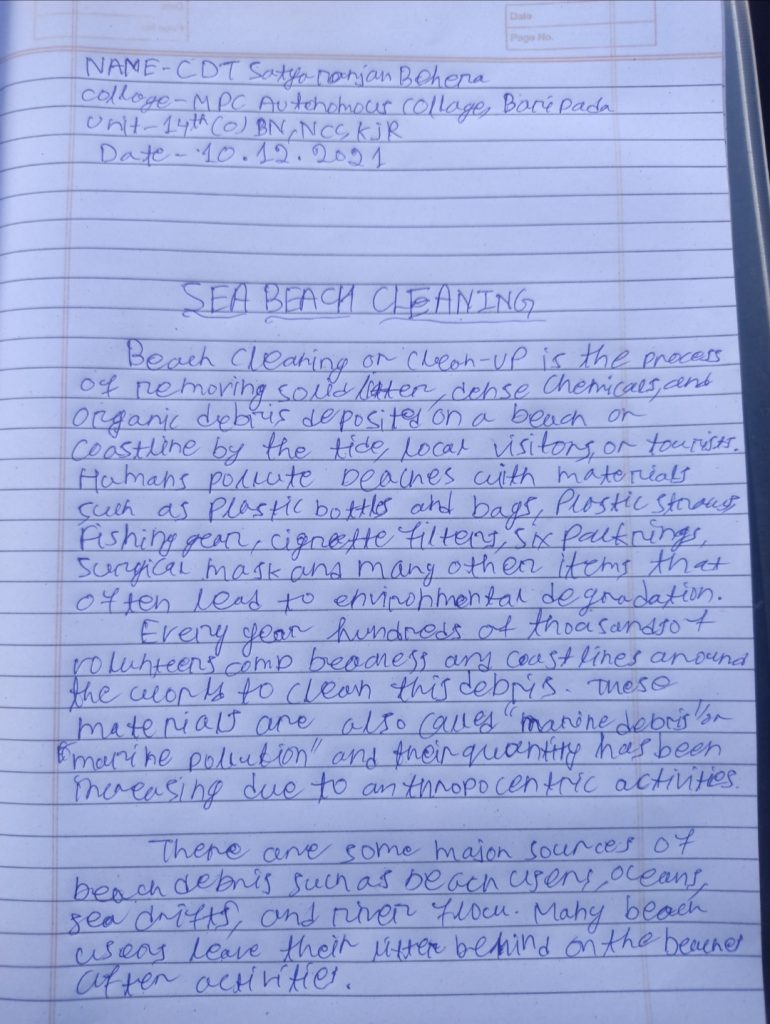 Date
Page No.
NAME-CDT Satyaranjan Behera
Collage-MPC Autonomous Collage, Baripada
Unit-14th(O) BN, NCC, KJR
Date-10.12.2021
SEA BEACH CLEANING
Beach cleaning or clean-up is the process
of removing solid litter, dense chemicals, and
organic debris deposited on a beach or
coastline by the tide, local visitors, or tourists.
Humans pollute beaches with materials
such as plastic bottles and bags, plastic straws
Fishing gear, cigrette filters, six pack rings,
surgical mask and many other items that
often lead to environmental degradation.
Every year hundreds of thoasands of
volunteers comb beaches and coastlines around
the world to clean this debris. These
materials are also called "marine debris" or
"marine pollution" and their quantity has been
increasing due to anthropocentric activities.
There are some major sources of
beach debris such as beach users, oceans,
sea drifts, and river flow. Many beach
users leave their litter behind on the beaches
after activities.